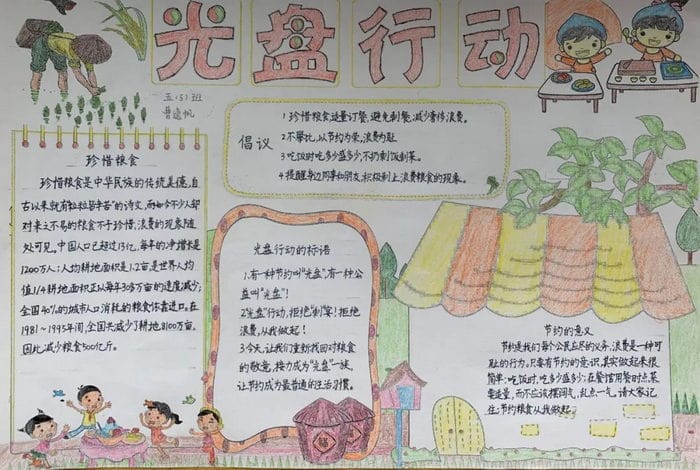 光盘行动
五(5)班
倡议
1珍惜粮食适量订餐,避免剩餐,减少奢侈浪费。
2不攀比,以节约为荣,浪费为耻
3吃饭时吃多少盛多少,不扔剩饭剩菜。
4提醒身边同事和朋友,积极制止浪费粮食的现象。
珍惜粮食
珍惜粮食是中华民族的传统美德,自
古以来就有粒粒皆辛苦"的诗文,而如今不少人却
对来之不易的粮食不予珍惜,浪费的现象随
处可见。中国人口已超过13亿,每年的净增长是
1200万人;人均耕地面积是1.2亩是世界人均
值1/4耕地面积正从每年30多万亩的速度减少;
全国40%的城市人口消耗的粮食依靠进口。在
1981~1995年间,全国共减少了耕地8100万亩,
因此减少粮食500亿斤。
光盘行动的标语
1.有一种节约叫"光盘",有一种公
益叫"光盘"!
2"光盘"行动,拒绝"剩"宴!拒绝
浪费,从我做起!
3今天,让我们重新找回对粮食
的敬意,接力成为"光盘"一族,
让节约成为最普通的生活习惯。
节约的意义
节约是我们每个公民应尽的义务,浪费是一种可
耻的行为。只要有节约的意识,其实做起来很
简单:吃饭时,吃多少盛多少;在餐馆用餐时点菜
要适量,而不应该摆阔气,乱点一气。请大家记
住:节约粮食从我做起。